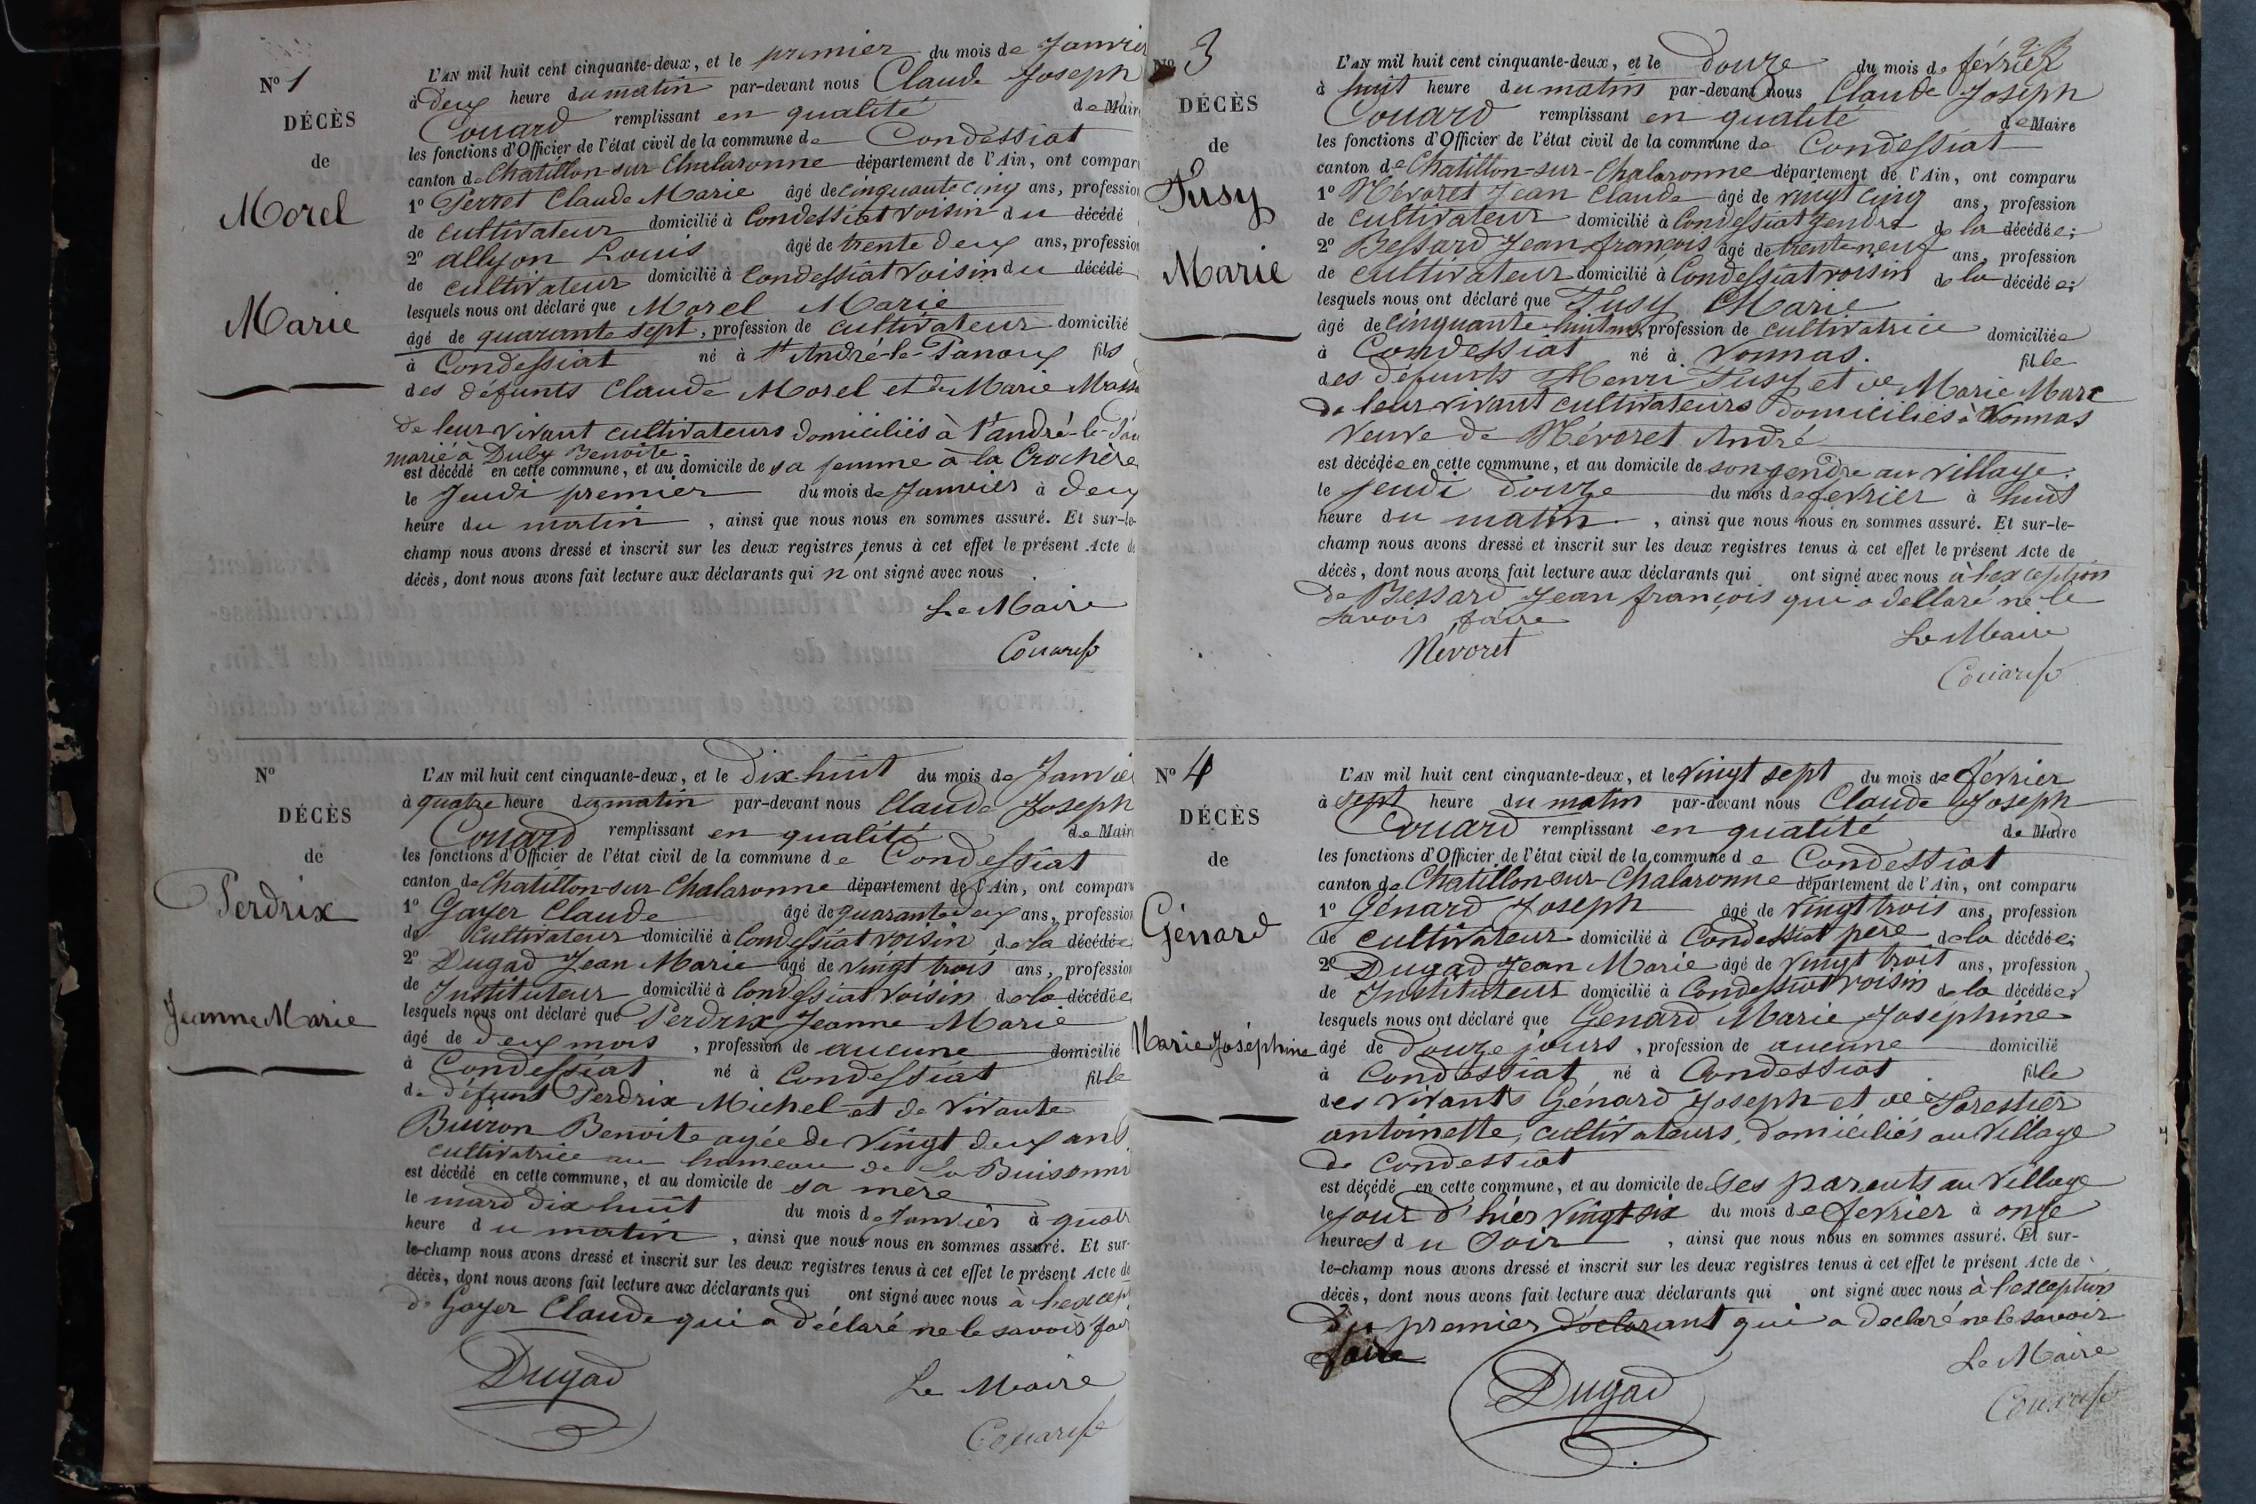 N° 1
DÉCÈS
de
Morel
Marie
L'AN mil huit cent cinquante-deux, et le premier du mois de Janvier
à deux heure du matin par-devant nous Claude Joseph
Couard remplissant en qualité de Maire
les fonctions d'Officier de l'état civil de la commune de Condessiat
canton de Chatillon-sur-Chalaronne département de l'Ain, ont compar
1° Perret Claude Marie âgé de cinquante cinq ans, profession
de cultivateur domicilié à Condessiat voisin du décédé
2° allyon Louis âgé de trente deux ans, profession
de cultivateur domicilié à Condessiat voisin du décédé
lesquels nous ont déclaré que Morel Marie
âgé de quarante sept, profession de cultivateur domicilié
à Condessiat né à St André-le-Panoux fils
des défunts Claude Morel et de Marie
de leur vivant cultivateurs domiciliés à St andré-le-
marié à Duby Benoite
est décédé en cette commune, et au domicile de sa femme à la Crochère
le Jeudi premier du mois de Janvier à deux
heure du matin, ainsi que nous nous en sommes assuré. Et sur-le-
champ nous avons dressé et inscrit sur les deux registres tenus à cet effet le présent Acte de
décès, dont nous avons fait lecture aux déclarants qui n ont signé avec nous
Le Maire
Couard
N°
DÉCÈS
de
Perdrix
Jeanne Marie
L'AN mil huit cent cinquante-deux, et le Dix huit du mois de Janvie
à quatre heure du matin par-devant nous Claude Joseph
Couard remplissant en qualité de Mair
les fonctions d'Officier de l'état civil de la commune de Condessiat
canton de Chatillon-sur-Chalaronne département de l'Ain, ont comparu
1° Gayer Claude âgé de quarante deux ans, profession
de cultivateur domicilié à Condessiat voisin de la décédée
2° Dugad Jean Marie âgé de vingt trois ans, profession
de Instituteur domicilié à Condessiat voisin de la décédée
lesquels nous ont déclaré que Perdrix Jeanne Marie
âgé de deux mois, profession de aucune domicilié
à Condessiat né à Condessiat fille
de défunt Perdrix Michel et de vivante
Buiron Benoite agée de vingt deux ans
cultivatrice au hameau de la
est décédé en cette commune, et au domicile de sa mère
le mard dix huit du mois de Janvier à quatr
heure du matin, ainsi que nous nous en sommes assuré. Et sur-
le-champ nous avons dressé et inscrit sur les deux registres tenus à cet effet le présent Acte de
décès, dont nous avons fait lecture aux déclarants qui ont signé avec nous à l'excep
de Gayer Claude qui a déclaré ne le savoir
Dugad
Le Maire
Couard
N° 3
DÉCÈS
de
Tusy
Marie
L'AN mil huit cent cinquante-deux, et le Douze du mois de février
à huit heure du matin par-devant nous Claude Joseph
Couard remplissant en qualité de Maire
les fonctions d'Officier de l'état civil de la commune de Condessiat
canton de Chatillon-sur-Chalaronne département de l'Ain, ont comparu
1° Névoret Jean Claude âgé de vingt cinq ans, profession
de cultivateur domicilié à Condessiat gendre de la décédée;
2° Bessard Jean françois âgé de trente neuf ans, profession
de cultivateur domicilié à Condessiat voisin de la décédée;
lesquels nous ont déclaré que Tusy Marie
âgé de cinquante huit ans, profession de cultivatrice domiciliée
à Condessiat né à Vonnas. fille
des défunts Henri Tusy et de Marie Marc
de leur vivant cultivateurs domiciliés à Vonnas
veuve de Névoret André
est décédée en cette commune, et au domicile de son gendre au village.
le jeudi douze du mois de février à huit
heure du matin, ainsi que nous nous en sommes assuré. Et sur-le-
champ nous avons dressé et inscrit sur les deux registres tenus à cet effet le présent Acte de
décès, dont nous avons fait lecture aux déclarants qui ont signé avec nous à l'exception
de Bessard Jean françois qui a déclaré ne le
savoir faire
Névoret
Le Maire
Couard
N° 4
DÉCÈS
de
Génard
Marie Joséphine
L'AN mil huit cent cinquante-deux, et le vingt sept du mois de février
à sept heure du matin par-devant nous Claude Joseph
Couard remplissant en qualité de Maire
les fonctions d'Officier de l'état civil de la commune de Condessiat
canton de Chatillon-sur-Chalaronne département de l'Ain, ont comparu
1° Génard Joseph âgé de vingt trois ans, profession
de cultivateur domicilié à Condessiat père de la décédée;
2° Dugad Jean Marie âgé de vingt trois ans, profession
de Instituteur domicilié à Condessiat voisin de la décédée;
lesquels nous ont déclaré que Génard Marie Joséphine
âgé de douze jours, profession de aucune domicilié
à Condessiat né à Condessiat fille
des vivants Génard Joseph et de Forestier
antoinette, cultivateurs, domiciliés au village
de Condessiat
est décédé en cette commune, et au domicile de ses parents au village
le jour d'hier vingt-six du mois de février à onze
heures du soir, ainsi que nous nous en sommes assuré. Et sur-
le-champ nous avons dressé et inscrit sur les deux registres tenus à cet effet le présent Acte de
décès, dont nous avons fait lecture aux déclarants qui ont signé avec nous à l'exception
du premier déclarant qui a declaré ne le savoir
faire
Dugad
Le Maire
Couard